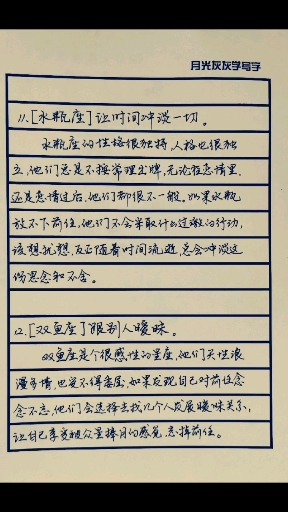 月光灰灰学写字
11.[水瓶座]让时间冲淡一切。
水瓶座的性格很独特,人格也很独
立,他们总是不按常理出牌,无论在感情里,
还是感情过后,他们都很不一般。如果水瓶
放不下前任,他们不会采取什么过激的行动,
该想就想,反正随着时间流逝,总会冲淡这
份思念和不舍。
12.[双鱼座]跟别人暧昧。
双鱼座是个很感性的星座,他们天性浪
漫多情,也受不得委屈,如果发现自己对前任念
念不忘,他们会选择去找几个人发展暧昧关系,
让自己享受被众星捧月的感觉,忘掉前任。